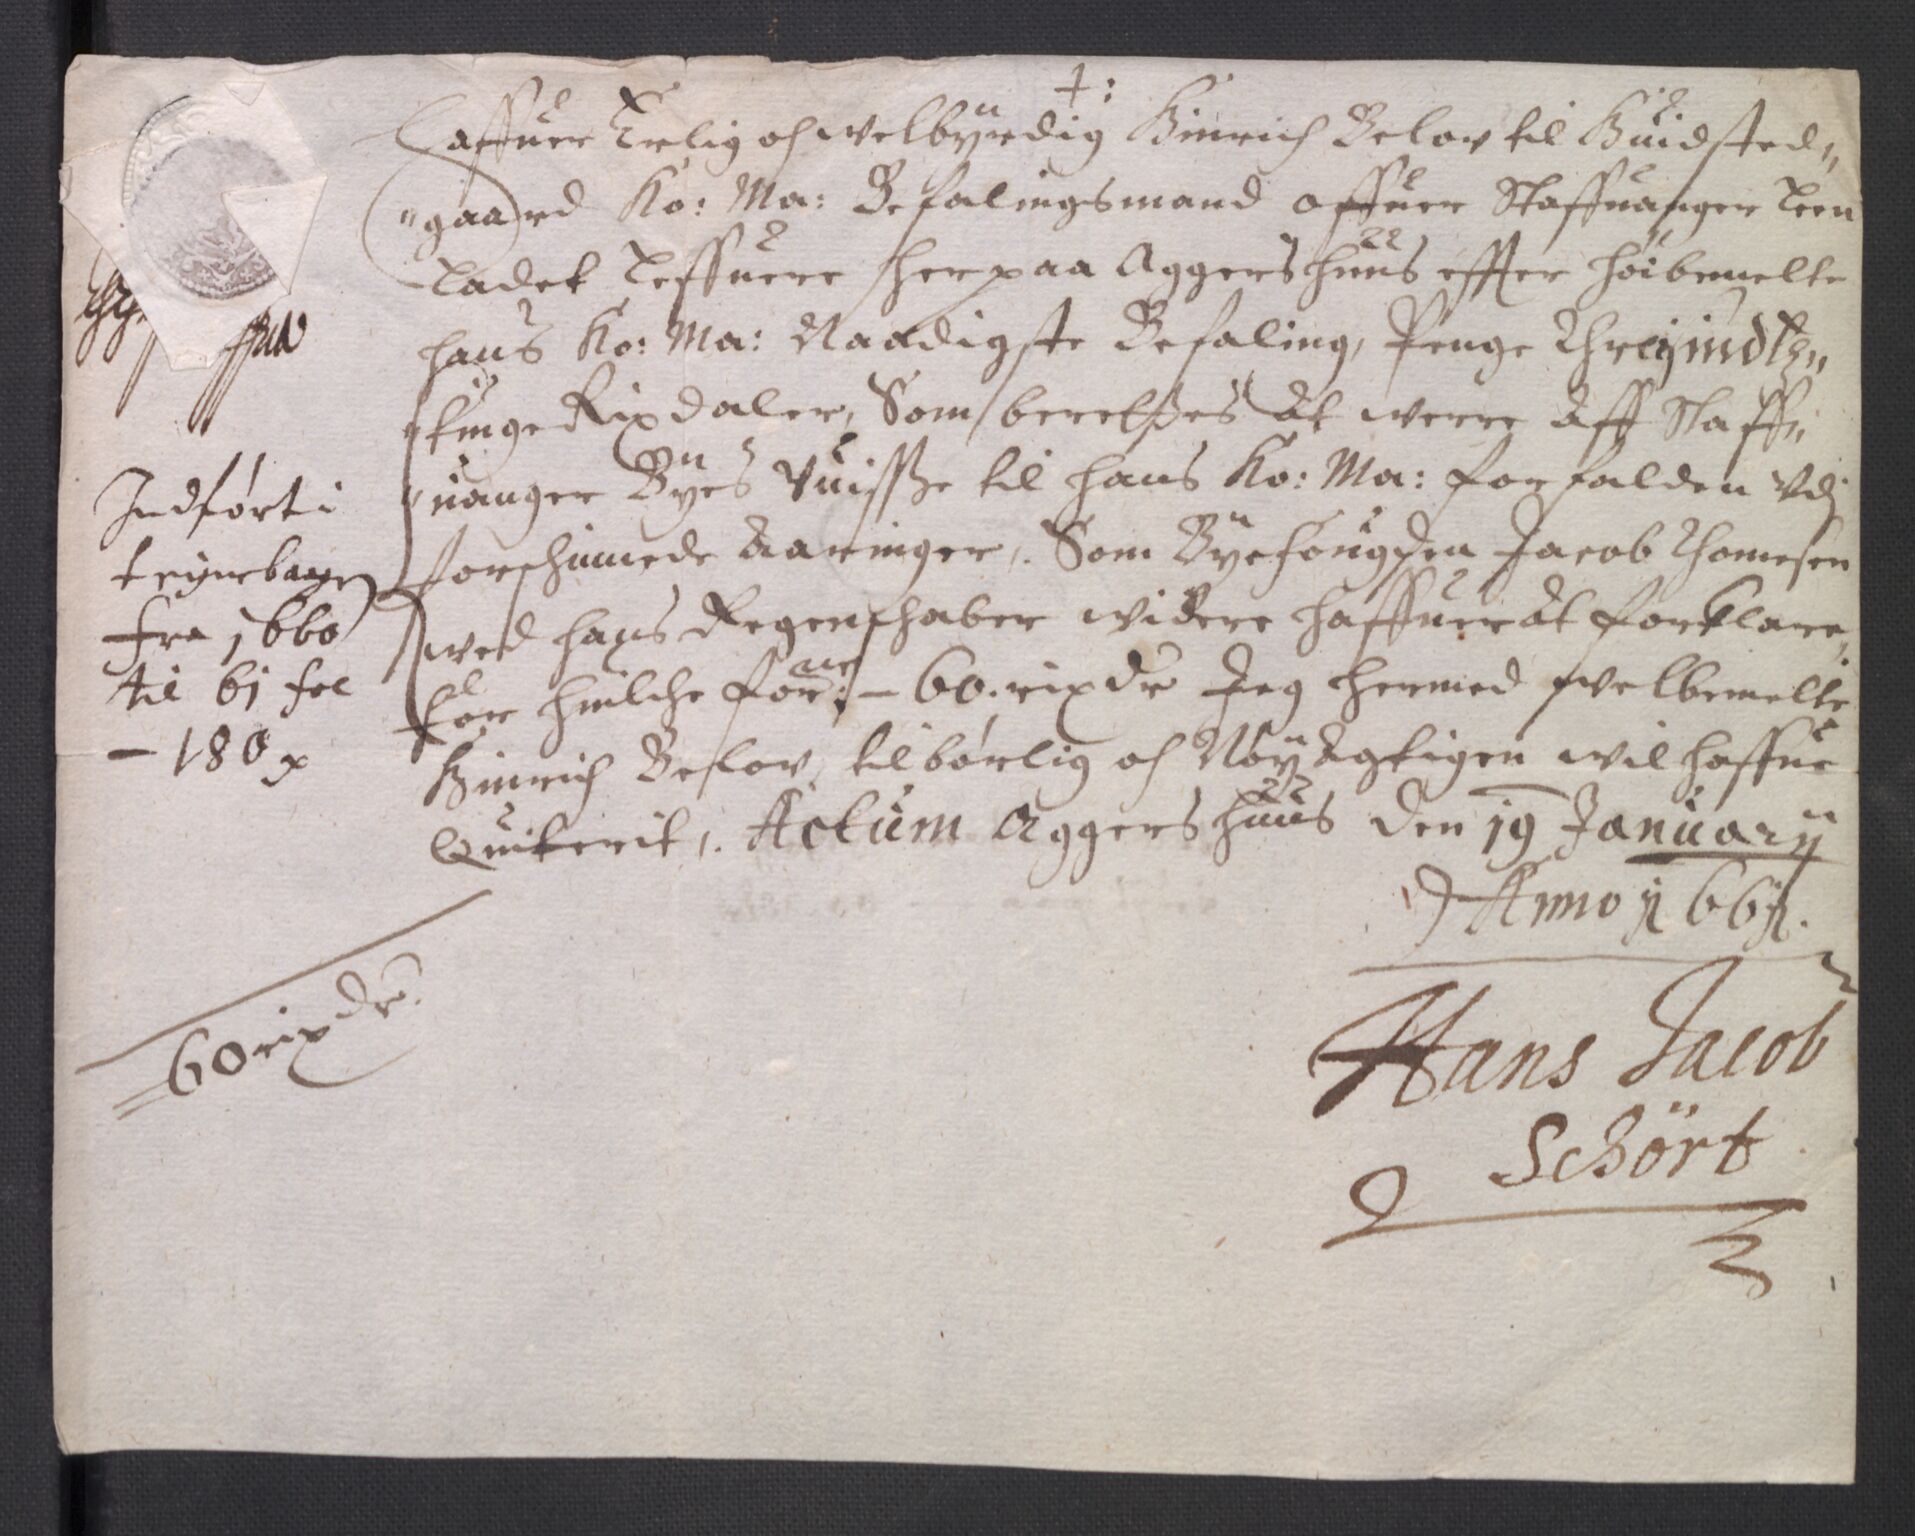 haffuer Erlig och welbÿrdig Hinrich Below til Huidsted„
„gaard Ko: Ma: Befalingsmand offuer Staffuanger Leen
Ladet Leffuere her paa Aggershuus effter høibemelte
hans Ko: Ma: Naadigste Befaling, Penge Threÿsindtz„
„tinge Rixdaler, Som berettes at were Aff Staff„
„uanger Byes Auisße til hans Ko: Ma: forfalden Vdj
forschinnede Aaringer, Som Byefougden Jacob Thomesen
wed hans Regenschaber widere haffuer At forklare,
for huilche for:ne — 60. rixdr Jeg hermed welbemelte
Hinrich Below, tilbørlig och Nøyagtigen wil haffue
Quiterit,. Actum Aggershuus den 19 Januarij
Anno 1661.
Hans Jacob
Schört
Indført i
fra 1660
til 61 fol
— 180
60 rixdr.